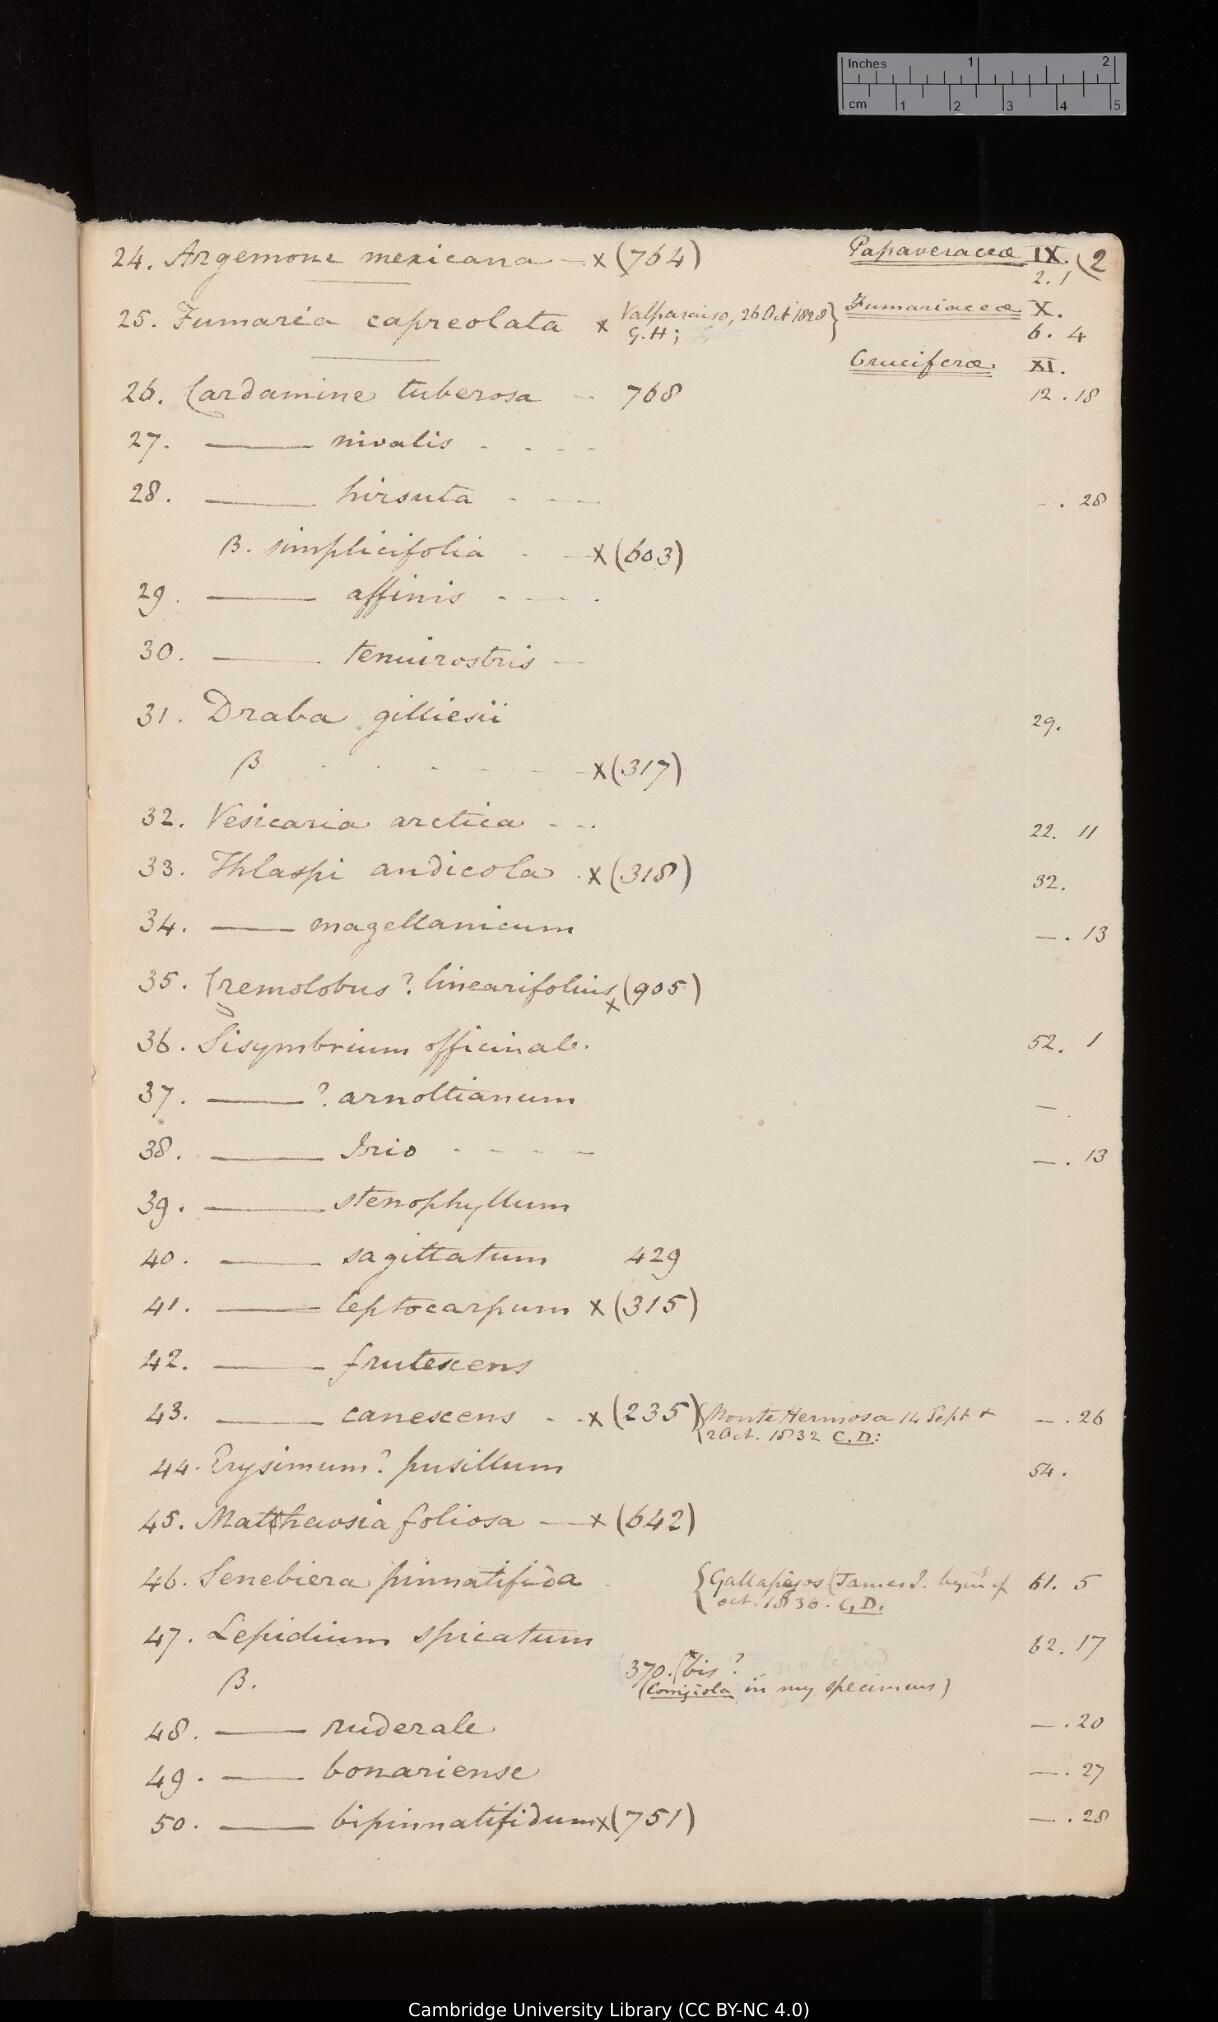 Inches 1 2
cm 1 2 3 4 5
24. Argemone mexicana — x (764) Papaveraceæ IX. 2
2. 1
25. Fumaria capreolata x Valparaiso, 26 Oct 1828} Fumariaceæ X.
G.H; 6. 4
Cruciferæ XI.
26. Cardamine tuberosa - 768 12. 18
27. —— nivalis - - - -
28. —— hirsuta - - - —. 28
β. simplicifolia - - x (603)
29. —— affinis - - - -
30. —— tenuirostris —
31. Draba gilliesii 29.
β - - - - - x (317)
32. Vesicaria arctica - - - 22. 11
33. Thlaspi andicola x (318) 32.
34. —— magellanicum —. 13
35. Cremolobus? linearifolius x (905)
36. Sisymbrium officinale. 52. 1
37. ——? arnottianum —
38. —— Irio - - - - —. 13
39. —— stenophyllum
40. —— sagittatum 429
41. —— leptocarpum x (315)
42. —— frutescens
43. —— canescens - - x (235) {Monte Hermosa 14 Sept & —. 26
2 Oct. 1832 C.D:
44. Erysimum? pusillum 54.
45. Matthewsia foliosa — x (642)
46. Senebiera pinnatifida {Gallapagos (James I. of 61. 5
oct. 1836. C.D.
47. Lepidium spicatum 62. 17
β. 370. (bis?
(Corrigiola in my specimens)
48. —— ruderale —. 20
49. —— bonariense —. 27
50. —— bipinnatifidum x (751) —. 28
Cambridge University Library (CC BY-NC 4.0)